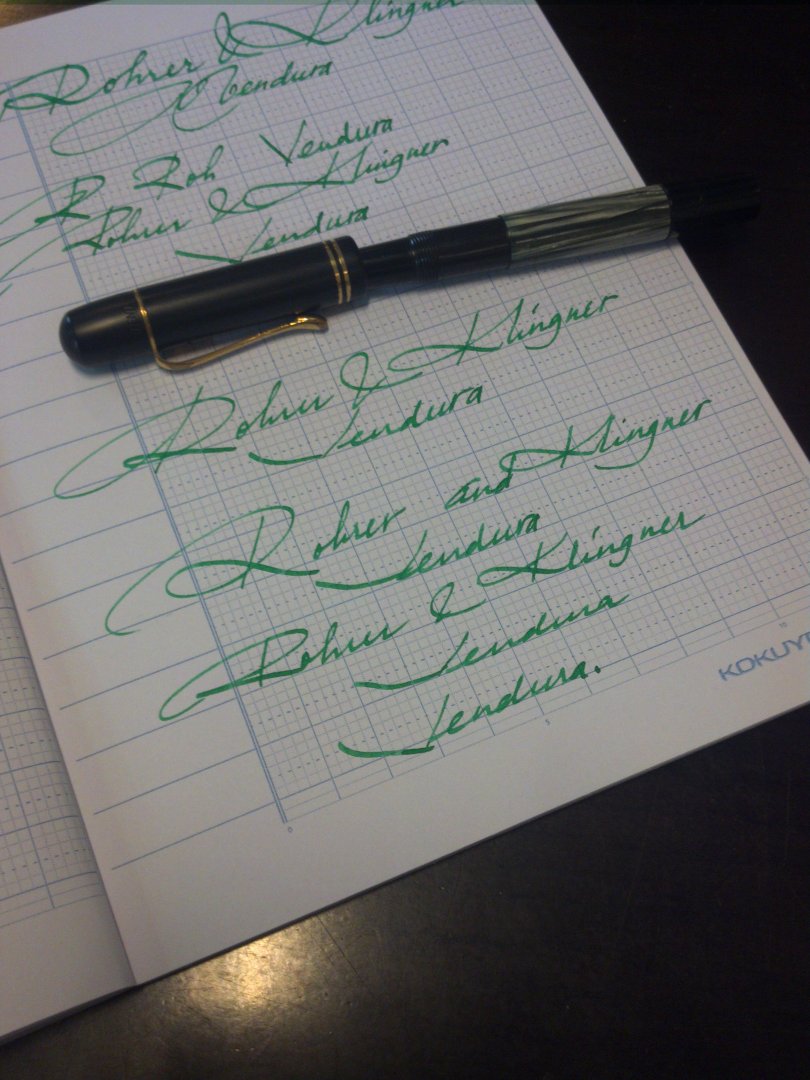 Rohrer & Klingner
Vendura
R Roh Vendura
Rohrer & Klingner
Vendura
Rohrer & Klingner
Vendura
Rohrer and Klingner
Vendura
Rohrer & Klingner
Vendura
Vendura.
KOKUYO
0
5
10